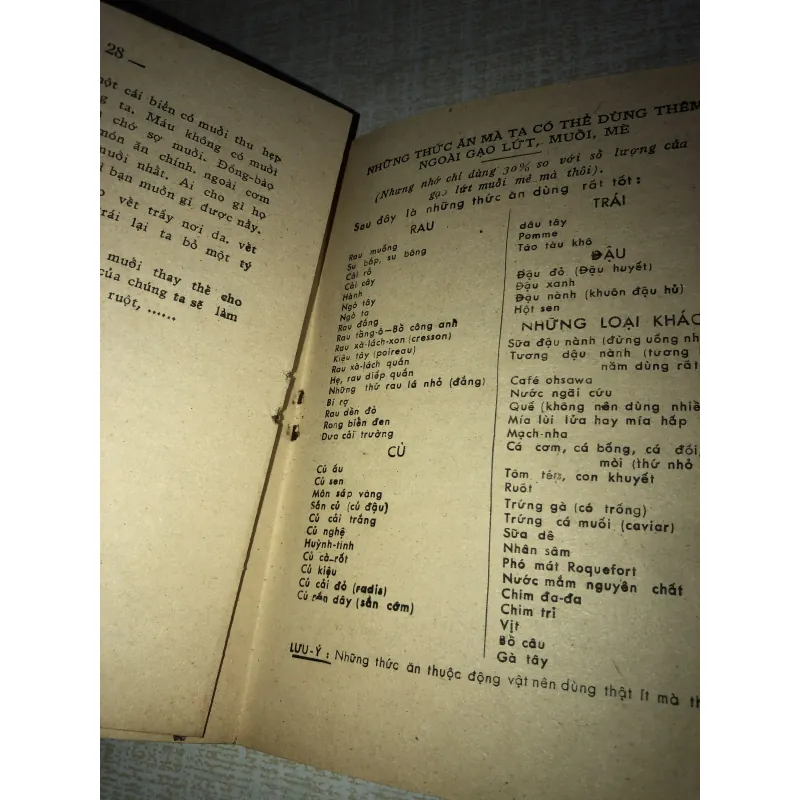 28 —
một cái biển có muối thu hẹp
ta. Máu không có muối
chớ sợ muối. Đồng-bào
món ăn chính. ngoài cơm
muối nhất. Ai cho gì họ
bạn muốn gì được nấy.
vết trầy nơi da. vết
trái lại ta bỏ một tý
muối thay thế cho
của chúng ta sẽ làm
ruột, ......
NHỮNG THỨC ĂN MÀ TA CÓ THỂ DÙNG THÊM
NGOÀI GẠO LỨT, MUỐI, MÈ
(Nhưng nhớ chỉ dùng 30% so với số lượng của
gạo lứt muối mè mà thôi).
Sau đây là những thức ăn dùng rất tốt:
RAU
Rau muống
Su bắp, su bông
Cải rổ
Cải cây
Hành
Ngò tây
Ngò ta
Rau đắng
Rau tầng-ô—Bồ công anh
Rau xà-lách-xon (cresson)
Kiệu tây (poireau)
Rau xà-lách quắn
Hẹ, rau diếp quắn
Những thứ rau lá nhỏ (đắng)
Bí rợ
Rau dền đỏ
Rong biển đen
Dưa cải trường
CỦ
Củ ấu
Củ sen
Môn sáp vàng
Sắn củ (củ đậu)
Củ cải trắng
Củ nghệ
Huỳnh-tinh
Củ cà-rốt
Củ kiệu
Củ cải đỏ (radis)
Củ sắn dây (sắn cơm)
TRÁI
dâu tây
Pomme
Táo tàu khô
ĐẬU
Đậu đỏ (Đậu huyết)
Đậu xanh
Đậu nành (khuôn đậu hủ)
Hột sen
NHỮNG LOẠI KHÁC
Sữa đậu nành (đừng uống
Tương dậu nành (tương
năm dùng rất
Café ohsawa
Nước ngãi cứu
Quế (không nên dùng
Mía lùi lửa hay mía hấp
Mạch-nha
Cá cơm, cá bống, cá đối
mòi (thứ nhỏ
Tôm tép, con khuyết
Ruốt
Trứng gà (có trống)
Trứng cá muối (caviar)
Sữa dê
Nhân sâm
Phó mát Roquefort
Nước mắm nguyên chất
Chim đa-đa
Chim trĩ
Vịt
Bồ câu
Gà tây
LƯU-Ý : Những thức ăn thuộc động vật nên dùng thật ít mà